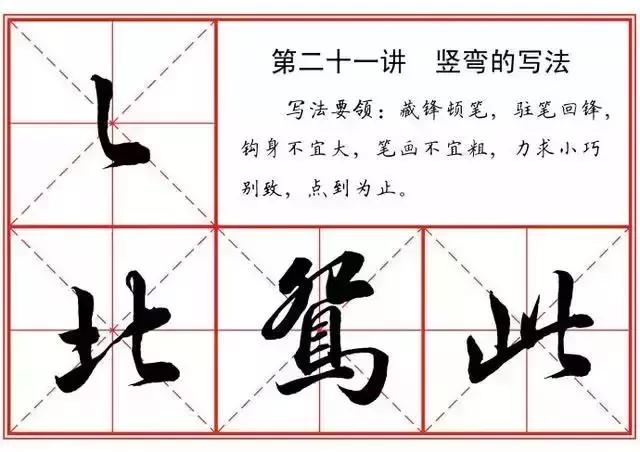 第二十一讲 竖弯的写法
写法要领：藏锋顿笔，驻笔回锋，
钩身不宜大，笔画不宜粗，力求小巧
别致，点到为止。
北 鴛 此